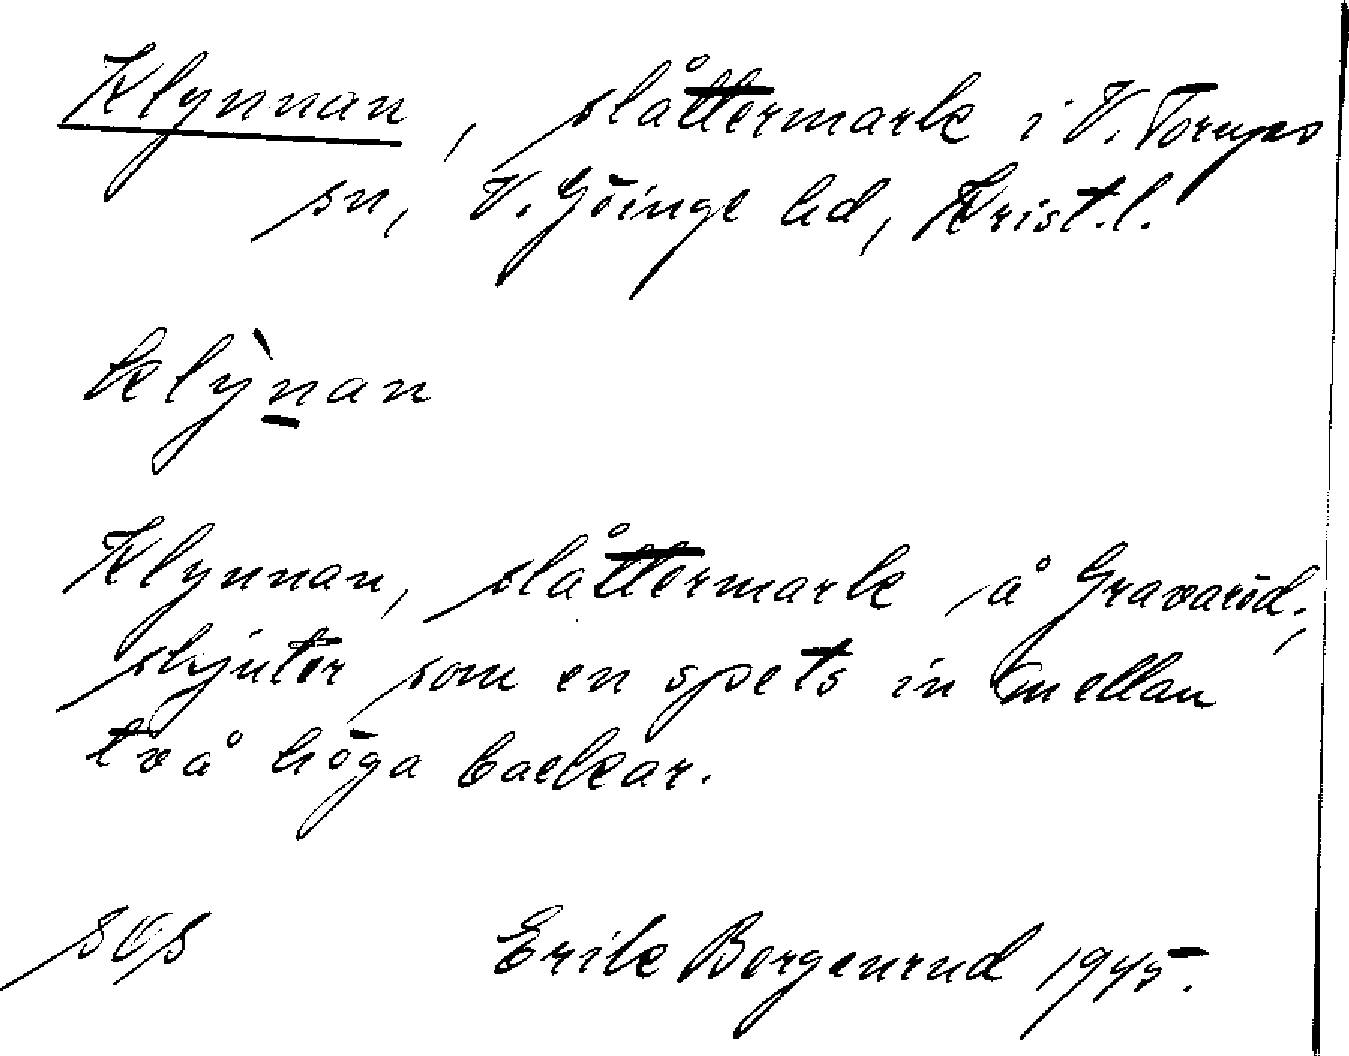 Klynnan, slåttermark i V. Torups
sn, V. Göinge hd, Krist. l.
klỳnan
Klynnan, slåttermark å Gravaröd;
skjuter som en spets in mellan
två höga backar.
Erik 1945.